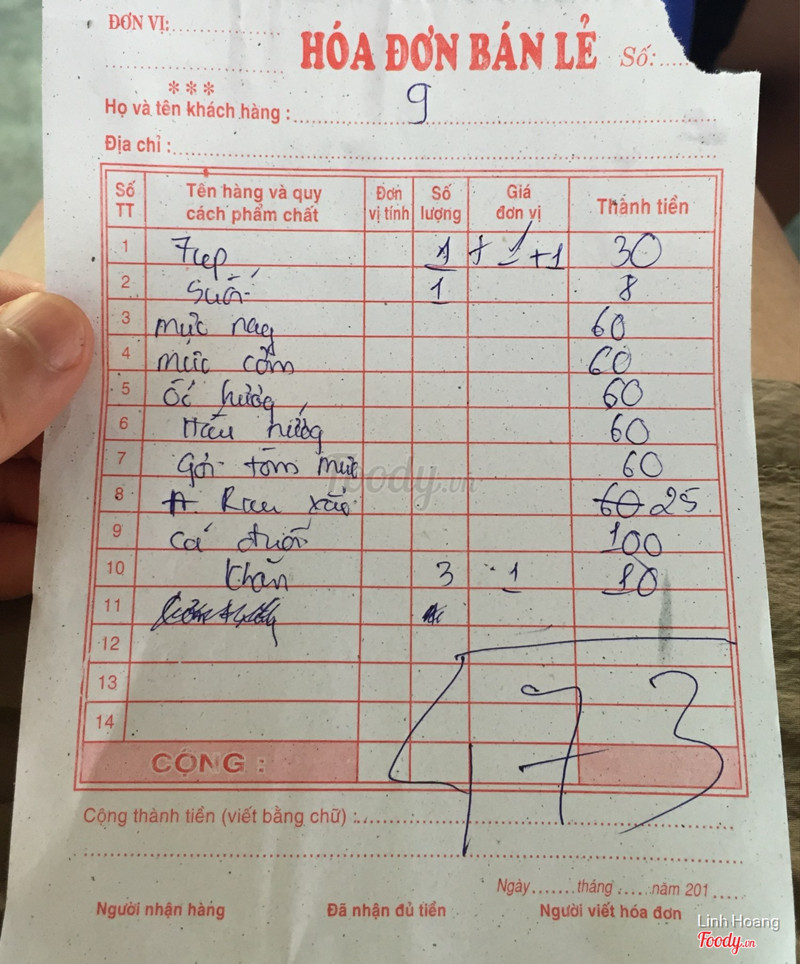 ĐƠN VỊ:
HÓA ĐƠN BÁN LẺ Số:
***
Họ và tên khách hàng : 9
Địa chỉ :
Số TT Tên hàng và quy cách phẩm chất Đơn vị tính Số lượng Giá đơn vị Thành tiền
1 7up 1 + 1 +1 30
2 Suối 1 8
3 mực nag 60
4 mực cơm 60
5 Ốc hương 60
6 Hàu nướng 60
7 gỏi tôm mực 60
8 Rau xào 60 25
9 cá đuối 100
10 khăn 3 1 10
11
12
13
14
CỘNG : 473
Cộng thành tiền (viết bằng chữ) :
Ngày tháng năm 201
Người nhận hàng Đã nhận đủ tiền Người viết hóa đơn
Foody.vn
Linh Hoang
Foody.vn